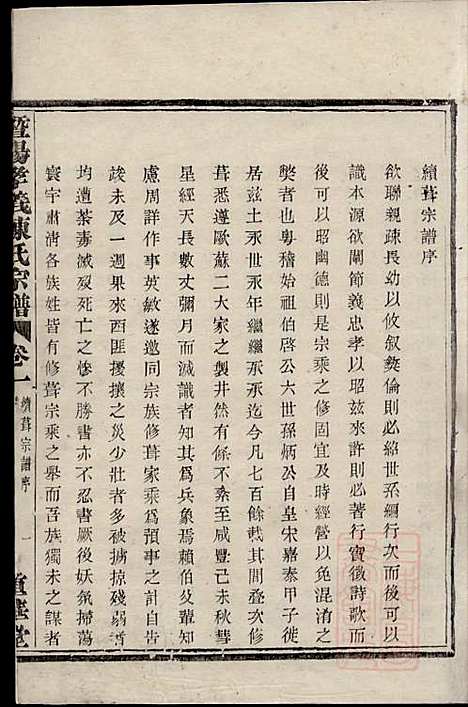 續葺宗譜序
欲聯親疎長幼以攸叙彝倫則必紹世系綱行次而後可以
識本源欲闡節義忠孝以昭兹來許則必著行實徵詩歌而
後可以昭幽德則是宗乘之修固宜及時經營以免混淆之
弊者也粵稽始祖伯啓公六世孫炳公自皇宋嘉泰甲子徙
居兹土永世永年繼繼承承迄今凡七百餘載其間叠次修
葺悉遵歐蘇二大家之製井然有條不紊至咸豐己未秋彗
星經天長數丈彌月而滅識者知其為兵象焉賴伯及輩知
慮周詳作事英敏遂邀同宗族修葺家乘為預事之計自告
竣未及一週果來西匪擾攘之災少壯者多被擄掠殘弱者
均遭荼毒滅裂死亡之慘不勝書亦不忍書厥後妖氛掃蕩
寰宇肅清各族姓皆有修葺宗乘之舉而吾族獨未之謀者
暨陽孝義陳氏宗譜
卷一
續葺宗譜序
一